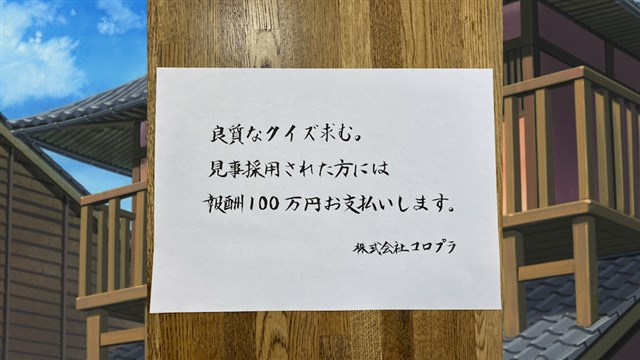 良質なクイズ求む。
見事採用された方には
報酬100万円お支払いします。
株式会社コロプラ